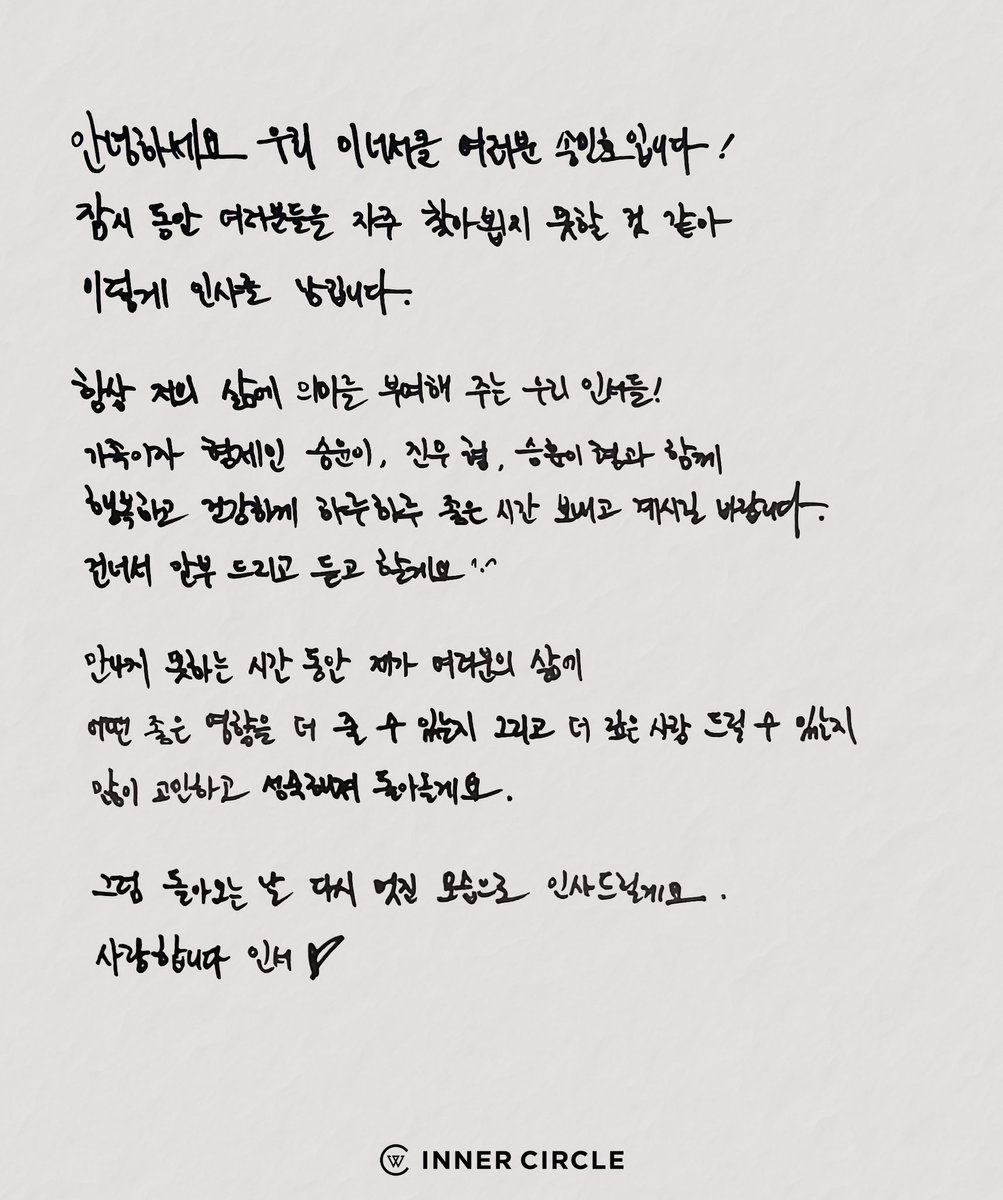 안녕하세요 우리 이너서클 여러분 송민호입니다!
잠시 동안 여러분들을 자주 찾아뵙지 못할 것 같아
이렇게 인사를 남깁니다.
항상 저의 삶에 의미를 부여해 주는 우리 인서들!
가족이자 형제인 승윤이, 진우 형, 승훈이 형과 함께
행복하고 건강하게 하루하루 좋은 시간 보내고 계시길 바랍니다.
건너서 안부 드리고 듣고 할게요 ^.^
만나지 못하는 시간 동안 제가 여러분의 삶에
어떤 좋은 영향을 더 줄 수 있는지 그리고 더 깊은 사랑 드릴 수 있는지
많이 고민하고 성숙해져 돌아올게요.
그럼 돌아오는 날 다시 멋진 모습으로 인사드릴게요.
사랑합니다 인서 ♥
INNER CIRCLE